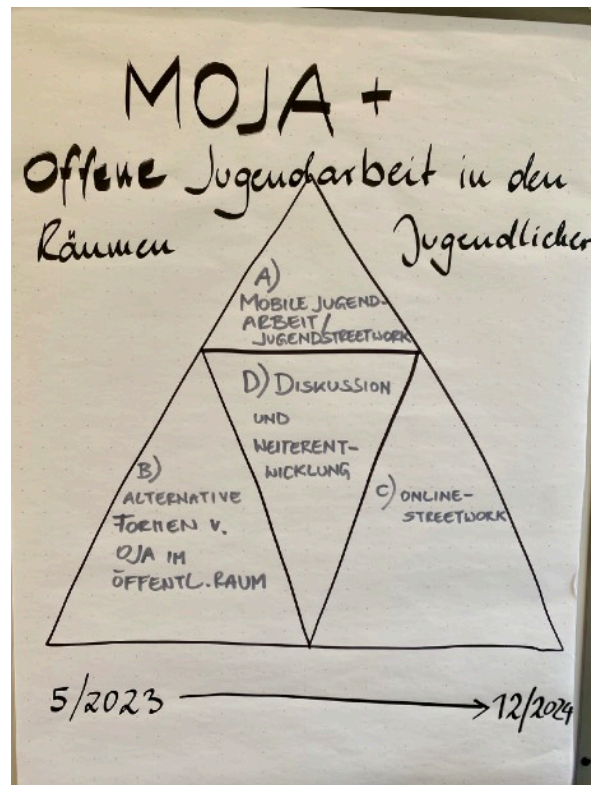 MOJA +
Offene Jugendarbeit in den
Räumen Jugendlicher
A)
MOBILE JUGEND-
ARBEIT/
JUGENDSTREETWORK
D) DISKUSSION
UND
WEITERENT-
WICKLUNG
B)
ALTERNATIVE
FORMEN V.
OJA IM
ÖFFENTL. RAUM
C) ONLINE-
STREETWORK
5/2023 → 12/2024